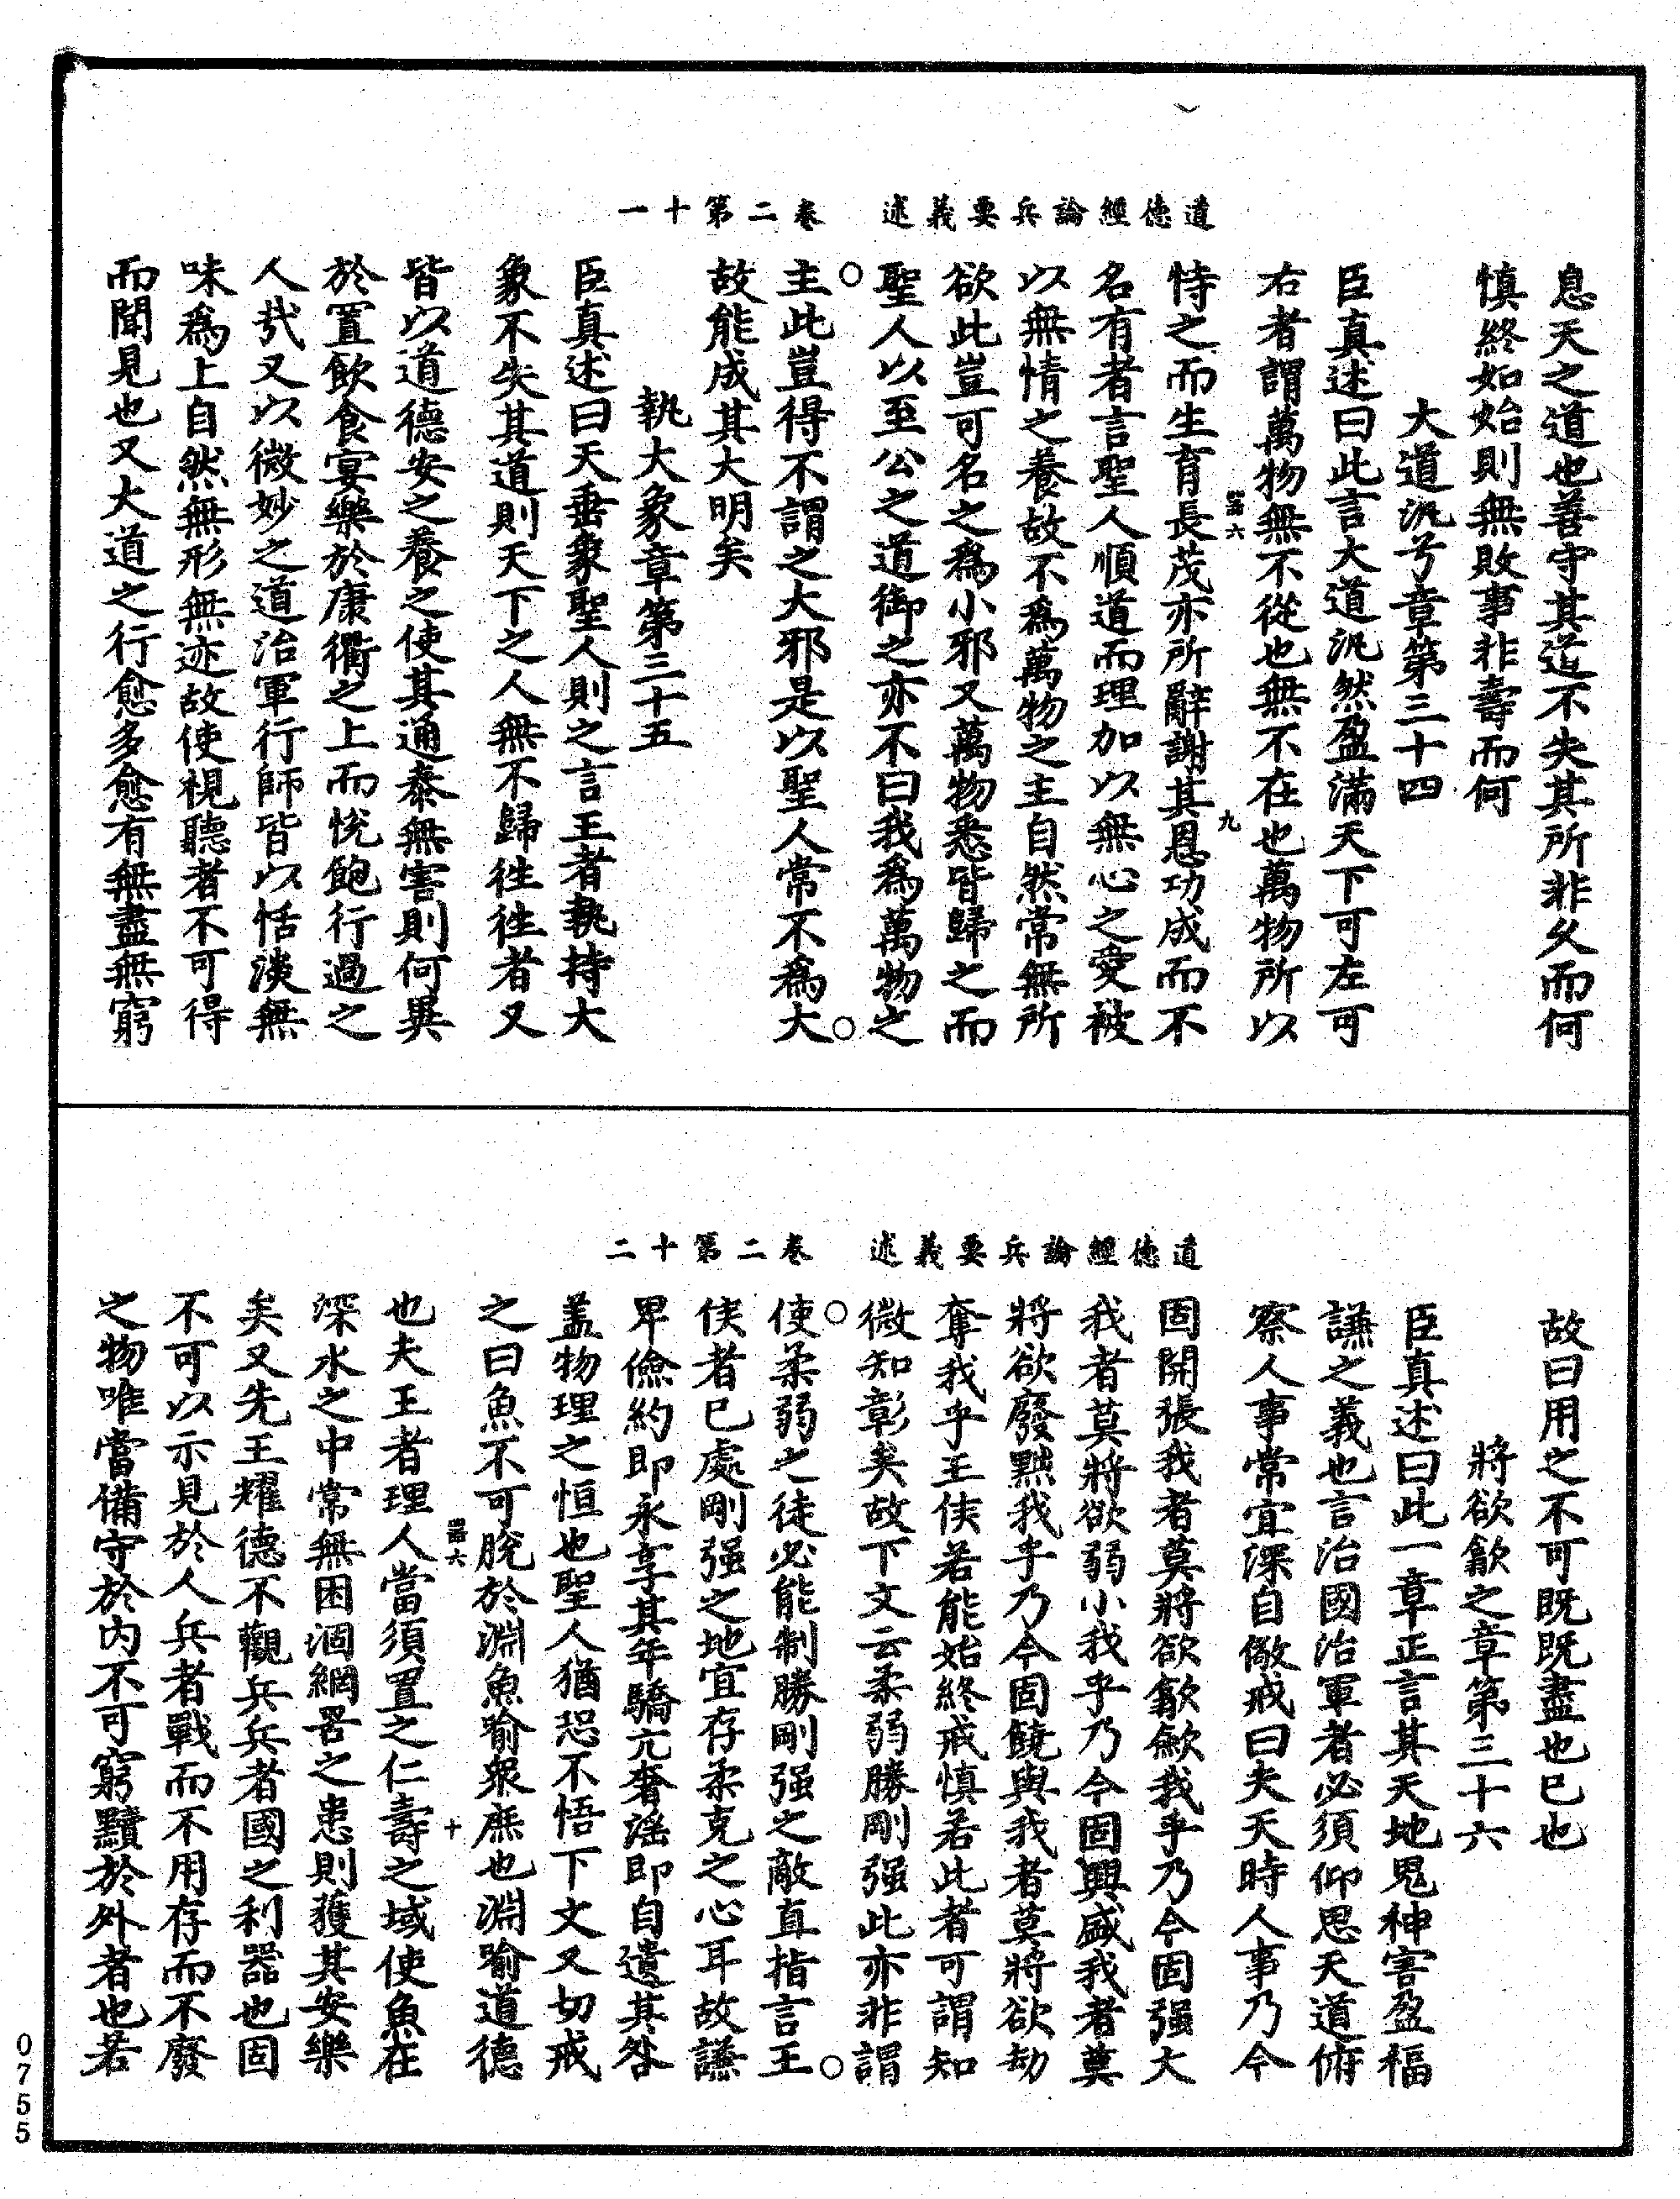 道德經論兵要義述　卷二第十一
息天之道也善守其道不失其所非久而何
慎終如始則無敗事非壽而何
大道汎兮章第三十四
臣真述曰此言大道汎然盈滿天下可左可
右者謂萬物無不從也無不在也萬物所以
恃之而生育長茂亦所辭謝其恩功成而不
名有者言聖人順道而理加以無心之愛被
以無情之養故不為萬物之主自然常無所
欲此豈可名之為小邪又萬物悉皆歸之而
聖人以至公之道御之亦不曰我為萬物之
主此豈得不謂之大邪是以聖人常不為大
故能成其大明矣
執大象章第三十五
臣真述曰天垂象聖人則之言王者執持大
象不失其道則天下之人無不歸往往者又
皆以道德安之養之使其通泰無害則何異
於置飲食宴樂於康衢之上而悅飽行過之
人哉又以微妙之道治軍行師皆以恬淡無
味為上自然無形無迹故使視聽者不可得
而聞見也又大道之行愈多愈有無盡無窮
六
九
道德經論兵要義述　卷二第十二
故曰用之不可既既盡也已也
將欲歙之章第三十六
臣真述曰此一章正言其天地鬼神害盈福
謙之義也言治國治軍者必須仰思天道俯
察人事常宜深自儆戒曰夫天時人事乃今
固開張我者莫將欲歙歛我乎乃今固强大
我者莫將欲弱小我乎乃今固興盛我者莫
將欲廢黜我乎乃今固饒與我者莫將欲劫
奪我乎王侯若能始終戒慎若此者可謂知
微知彰矣故下文云柔弱勝剛强此亦非謂
使柔弱之徒必能制勝剛强之敵直指言王
侯者已處剛强之地宜存柔克之心耳故謙
卑儉約即永享其年驕亢奢淫即自遺其咎
盖物理之恒也聖人猶恐不悟下文又切戒
之曰魚不可脫於淵魚喻衆庶也淵喻道德
也夫王者理人當須置之仁壽之域使魚在
深水之中常無困涸網罟之患則獲其安樂
矣又先王耀德不觀兵兵者國之利器也固
不可以示見於人兵者戰而不用存而不廢
之物唯當備守於内不可窮黷於外者也若
六
十
0755